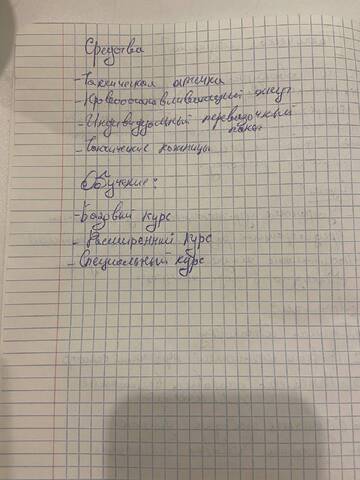 Средства
- Тактическая аптечка
- Кровоостанавливающий жгут
- Индивидуальный перевязочный
пакет
- Тактические ножницы
Обучение:
- Базовый курс
- Расширенный курс
- Специальный курс